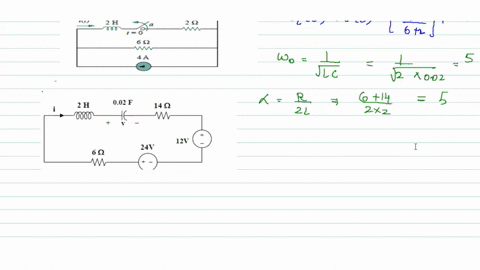 2 H
2 Ω
t = 0
6 Ω
4 A
6+2
ω₀ = 1/√LC = 1/√2 × 0.02 = 5
α = R/2L ⇒ 6+14/2×2 = 5
i
2 H
0.02 F
14 Ω
+ v −
12V
+
−
6 Ω
24V
+ −